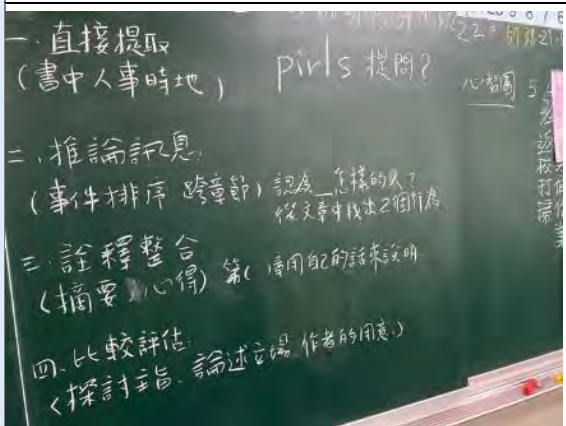 一. 直接提取
(書中人事時地)
pirls 提問?
二. 推論訊息
(事件排序 跨章節)
認為__怎樣的人?
從文章中找出2個行為
三. 詮釋整合
(摘要、心得)
第( )章用自己的話來說明
四. 比較評估
(探討主旨、論述立場、作者的用意)
心智圖
返校打掃